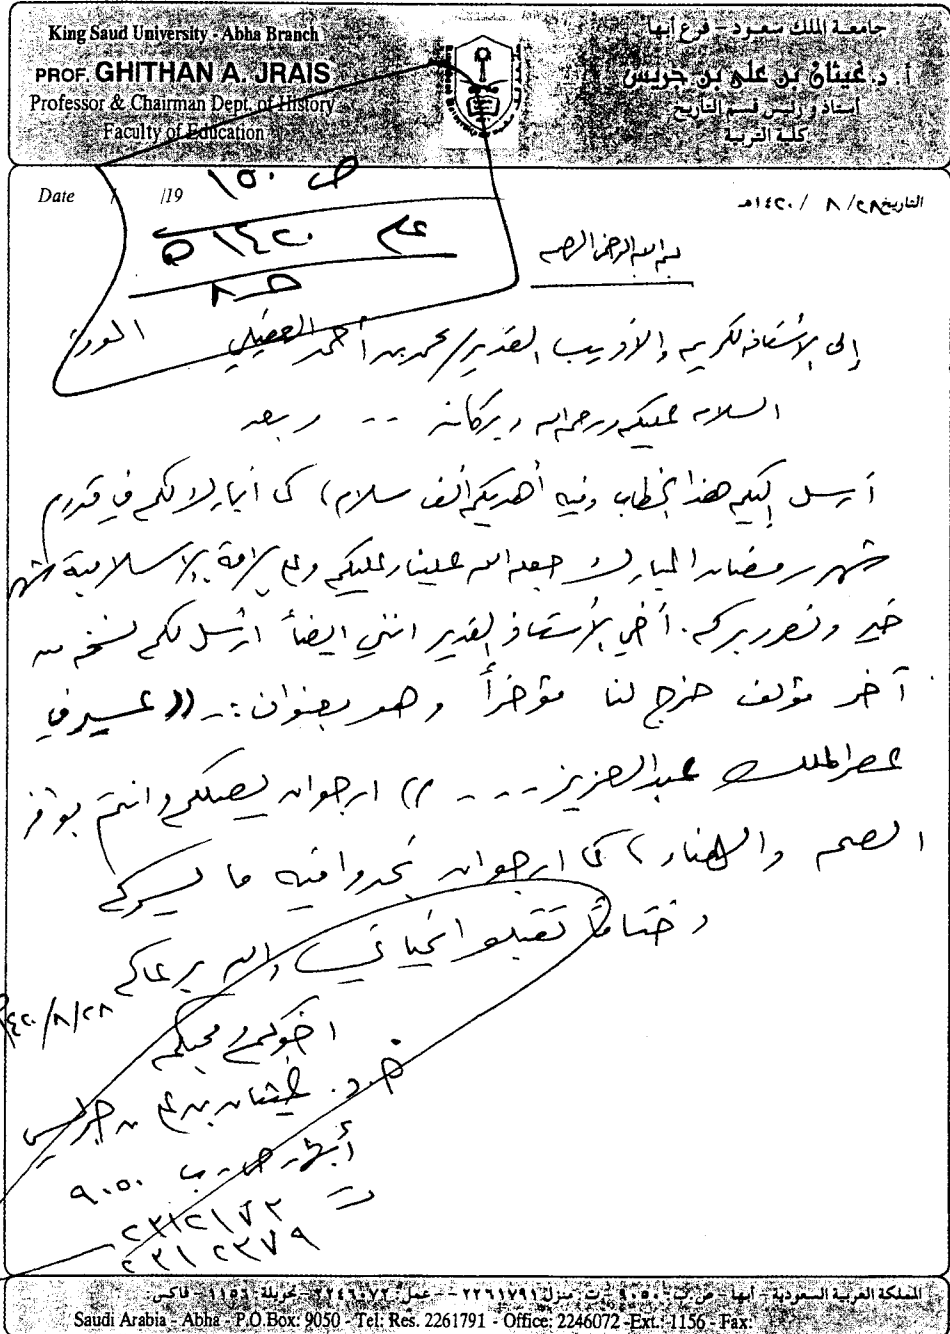 King Saud University - Abha Branch
PROF. GHITHAN A. JRAIS
Professor & Chairman Dept. of History
Faculty of Education
جامعة الملك سعود - فرع أبها
أ. د. غيثان بن علي بن جريس
أستاذ ورئيس قسم التاريخ
كلية التربية
Date / /19
التاريخ ٢٨/ ٨ / ١٤٢٠هـ
ص ١٥٠
عام ١٤٢٠هـ
بسم الله الرحمن الرحيم
إلى الأستاذ الكريم والأديب القدير/ محمد بن أحمد العقيلي الموقر
السلام عليكم ورحمة الله وبركاته -- وبعد
أرسل إليكم هذا الخطاب وفيه أهديكم ألف سلام، كما أبارك لكم في قدوم
شهر رمضان المبارك جعله الله علينا وعليكم وعلى الأمة الإسلامية شهر
خير ونصر وبركة. أخي الأستاذ القدير انني ايضاً ارسل لكم نسخه من
آخر مؤلف خرج لنا مؤخراً وهو بعنوان:- ((عسير في
عصر الملك عبدالعزيز - - - )) ارجو ان يصلكم وانتم بوافر
الصحه والهناء، كما ارجو ان تجدوا فيه ما يسركم
وختاماً تقبلوا تحياتي، والله يرعاكم
١٤٢٠/٨/٢٨
اخوكم ومحبكم
أ. د. غيثان بن علي بن جريس
أبها - ص ب ٩٠٥٠
ت ٢٣١٢١٧٢
٢٣١٢٣٧٩
المملكة العربية السعودية - أبها - ص ب ٩٠٥٠ - ت: منزل ٢٢٦١٧٩١ - عمل: ٢٢٤٦٠٧٢ - تحويلة ١١٥٦ - فاكس:
Saudi Arabia - Abha - P.O.Box: 9050 - Tel: Res. 2261791 - Office: 2246072 - Ext.: 1156 - Fax: